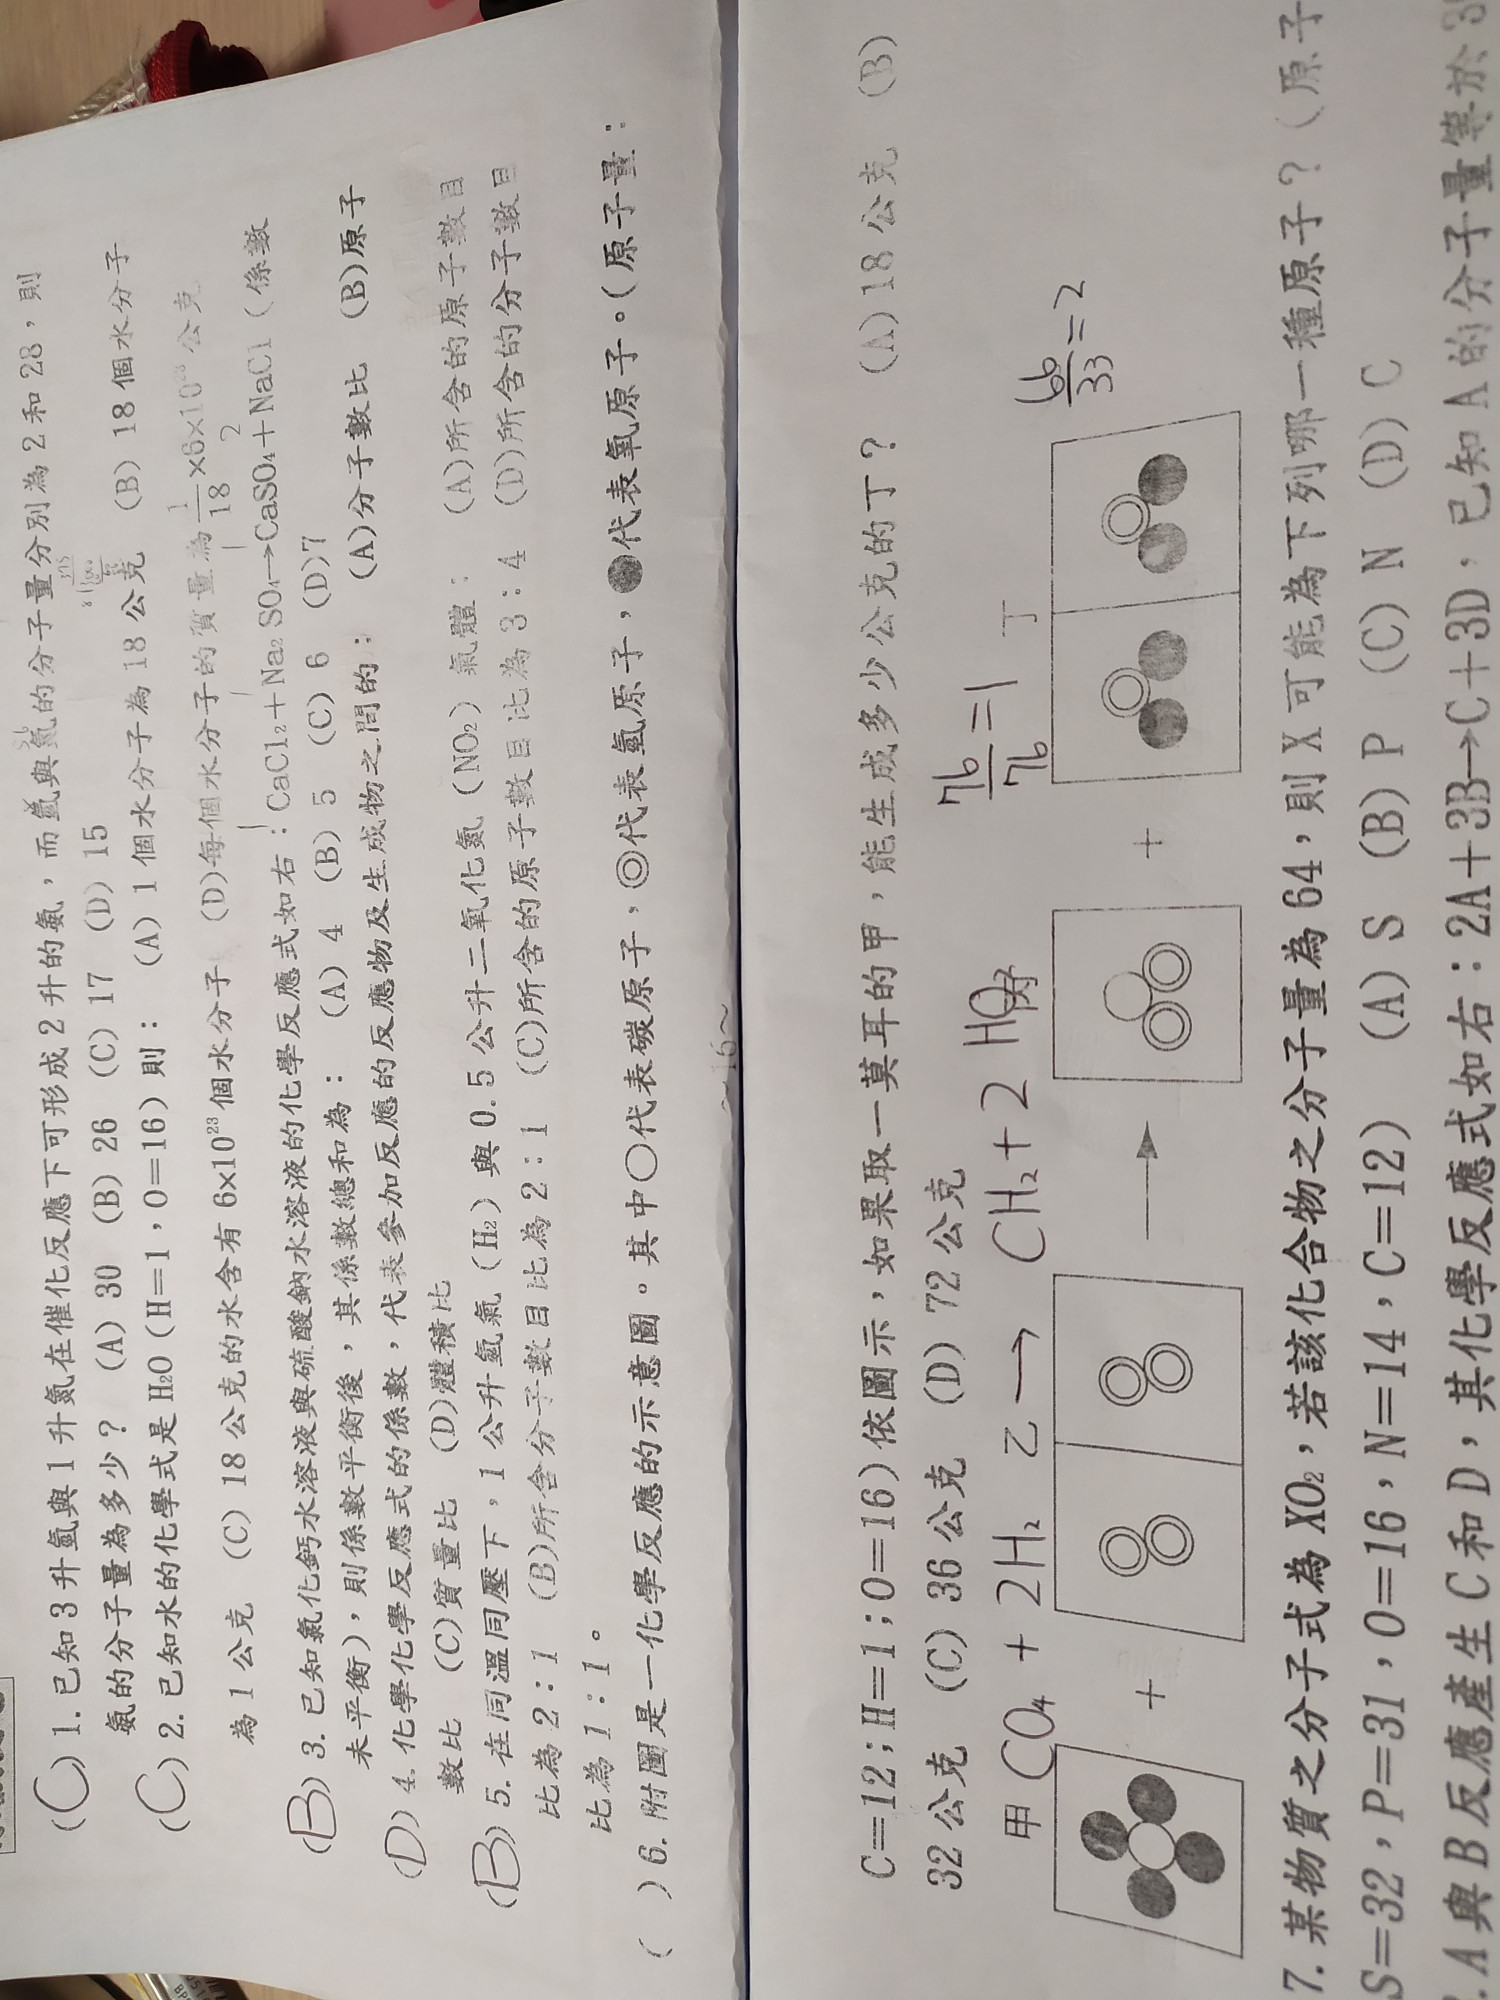 (C) 1. 已知 3 升氫與 1 升氮在催化反應下可形成 2 升的氨，而氫與氮的分子量分別為 2 和 28，則
氨的分子量為多少？ (A) 30 (B) 26 (C) 17 (D) 15
(C) 2. 已知水的化學式是 H₂O（H＝1，O＝16）則： (A) 1 個水分子為 18 公克 (B) 18 個水分子
為 1 公克 (C) 18 公克的水含有 6x10²³個水分子 (D)每個水分子的質量為 1/18 ×6×10²³公克
1 1 1 2
(B) 3. 已知氯化鈣水溶液與硫酸鈉水溶液的化學反應式如右：CaCl₂＋Na₂SO₄→CaSO₄＋NaCl（係數
未平衡），則係數平衡後，其係數總和為： (A) 4 (B) 5 (C) 6 (D)7
(D) 4. 化學化學反應式的係數，代表參加反應的反應物及生成物之間的： (A)分子數比 (B)原子
數比 (C)質量比 (D)體積比
(B) 5. 在同溫同壓下，1 公升氫氣（H₂）與 0.5 公升二氧化氮（NO₂）氣體： (A)所含的原子數目
比為 2：1 (B)所含分子數目比為 2：1 (C)所含的原子數目比為 3：4 (D)所含的分子數目
比為 1：1。
( ) 6. 附圖是一化學反應的示意圖。其中○代表碳原子，◎代表氫原子，●代表氧原子。（原子量：
~16~
C＝12；H＝1；O＝16）依圖示，如果取一莫耳的甲，能生成多少公克的丁？ (A) 18 公克 (B)
32 公克 (C) 36 公克 (D) 72 公克
76/76 = 1
66/33 = 2
甲 CO₄ + 2H₂ 乙 → CH₂ + 2 HO₂ 丁
＋ → ＋
7. 某物質之分子式為 XO₂，若該化合物之分子量為 64，則 X 可能為下列哪一種原子？（原子
S＝32，P＝31，O＝16，N＝14，C＝12） (A) S (B) P (C) N (D) C
. A 與 B 反應產生 C 和 D，其化學反應式如右：2A＋3B→C＋3D，已知 A 的分子量等於